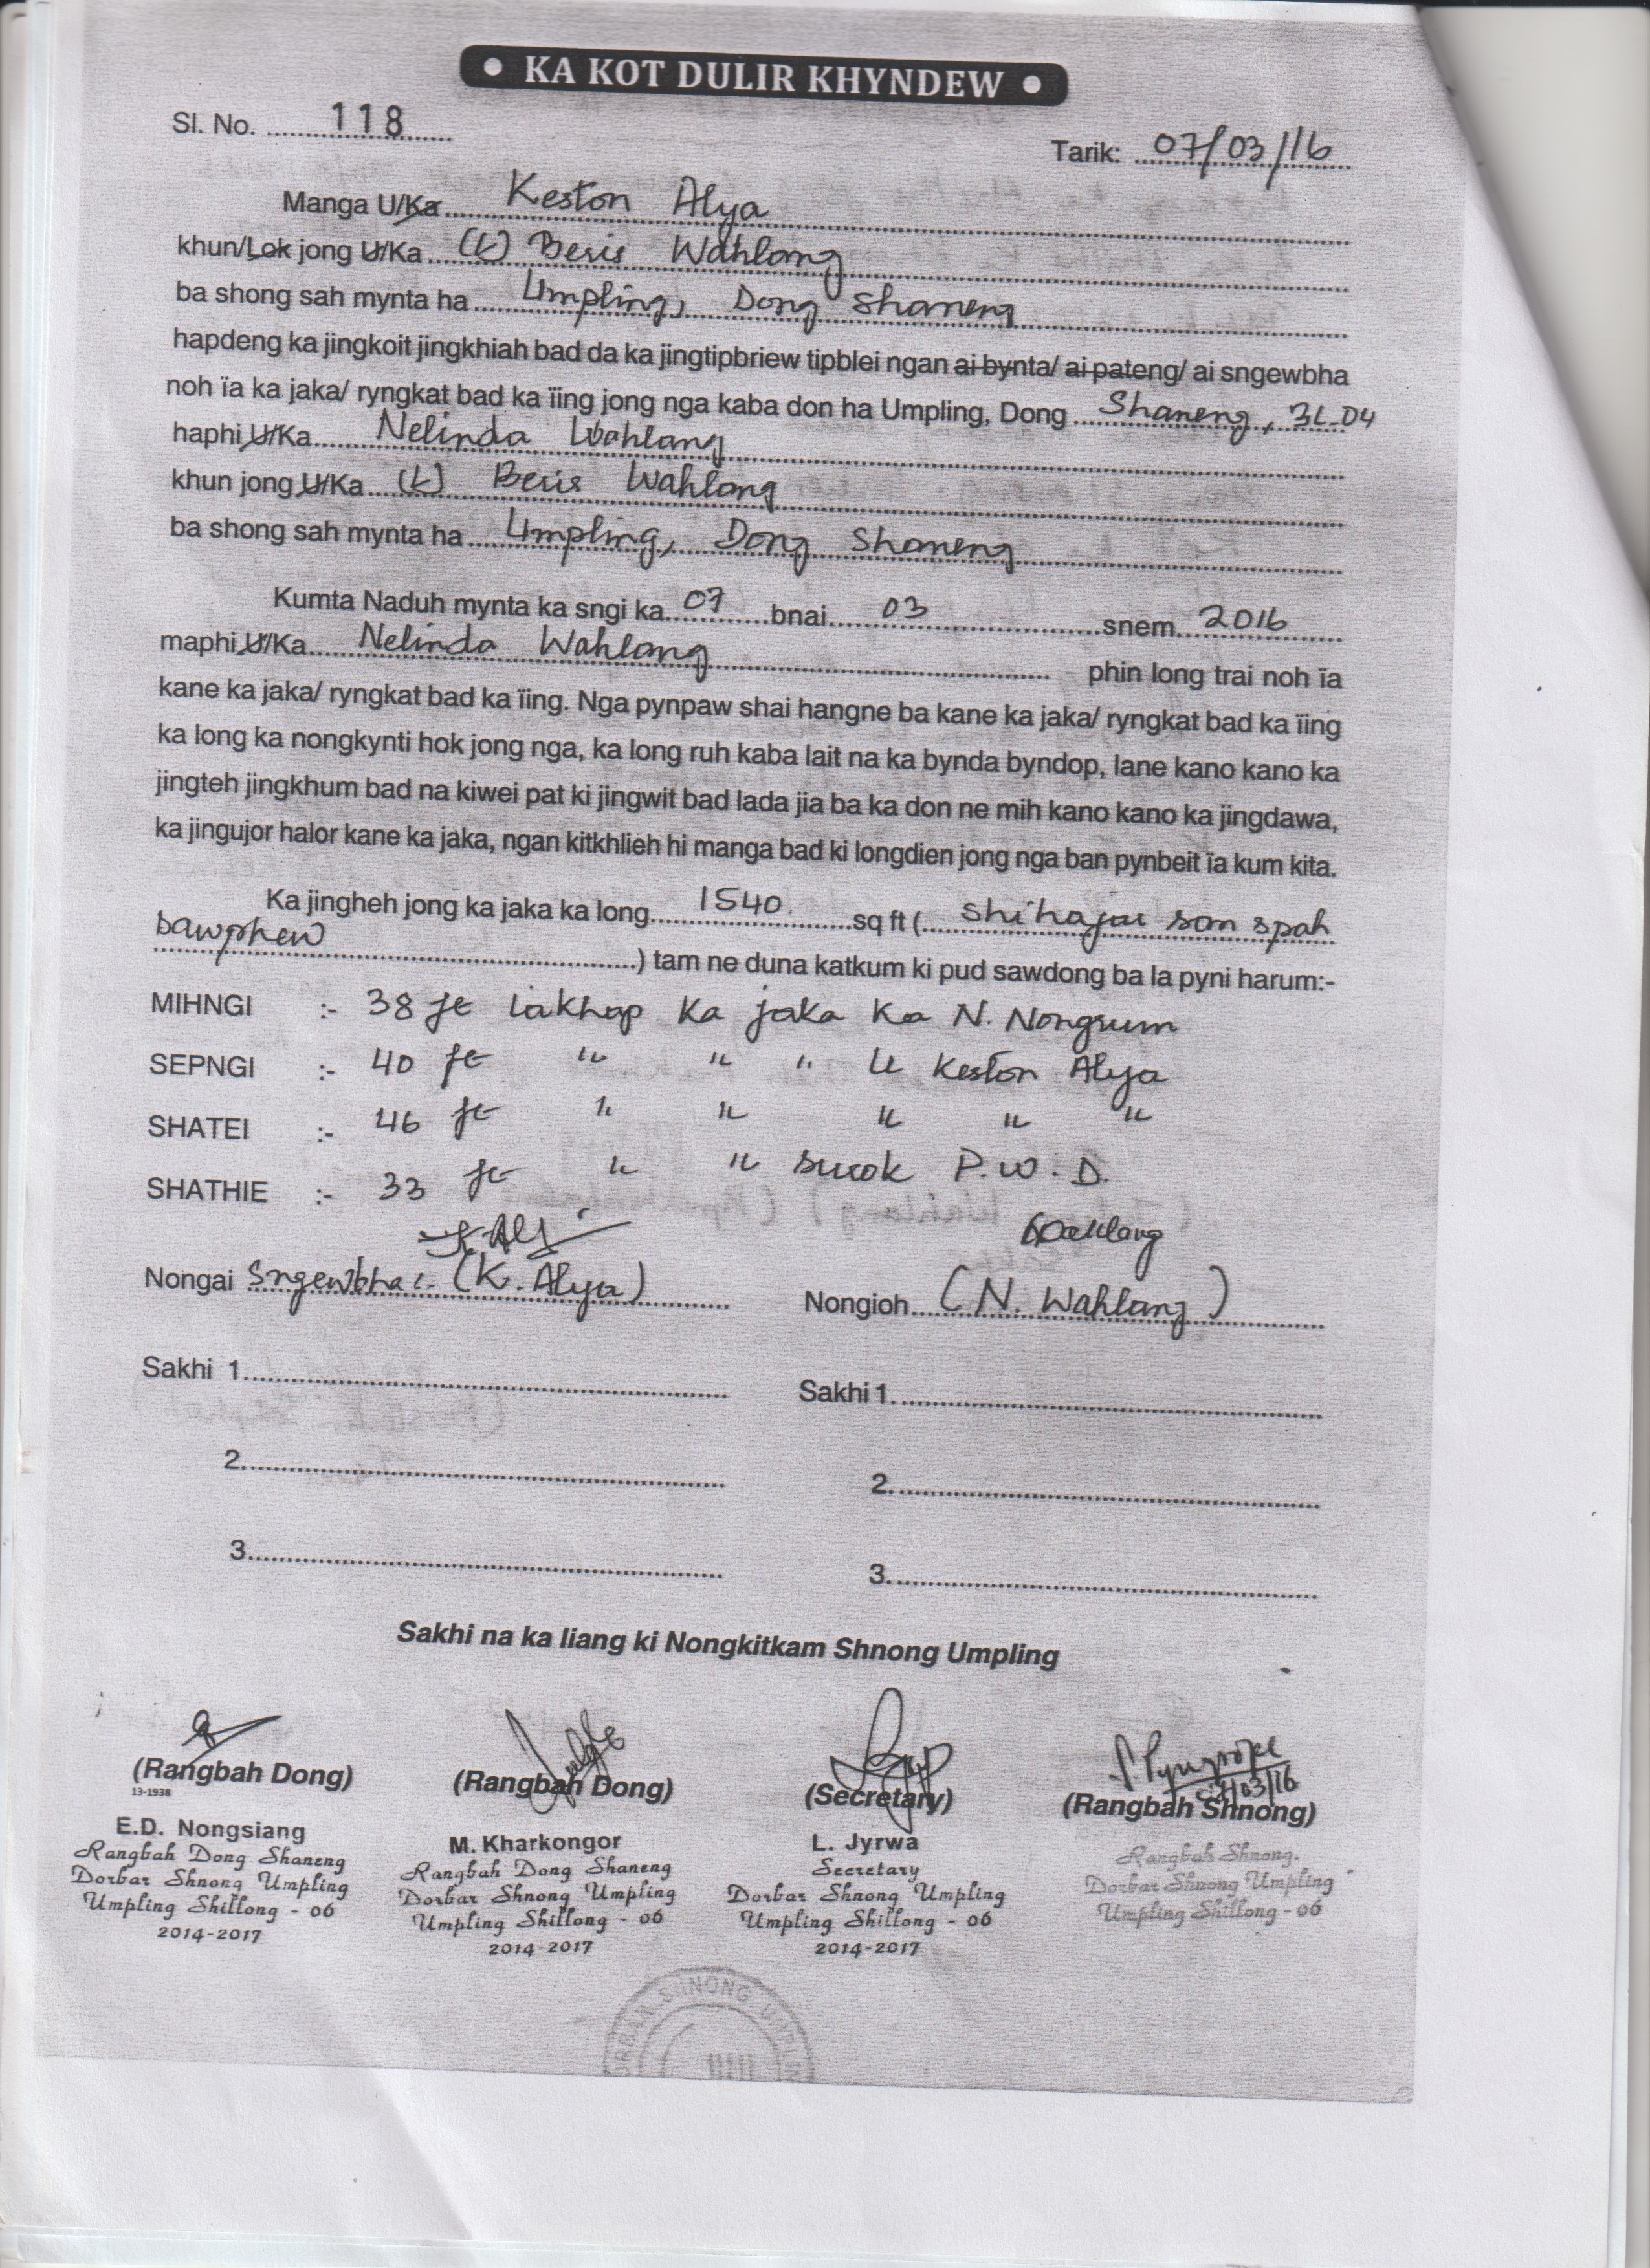 • KA KOT DULIR KHYNDEW •
Sl. No. 118
Tarik: 07/03/16
Manga U/Ka Keston Alya
khun/Lok jong U/Ka (L) Beris Wahlang
ba shong sah mynta ha Umpling, Dong Shaneng
hapdeng ka jingkoit jingkhiah bad da ka jingtipbriew tipblei ngan ai bynta/ ai pateng/ ai sngewbha
noh ïa ka jaka/ ryngkat bad ka ïing jong nga kaba don ha Umpling, Dong Shaneng, 3L-04
haphi U/Ka Nelinda Wahlang
khun jong U/Ka (L) Beris Wahlang
ba shong sah mynta ha Umpling, Dong Shaneng
Kumta Naduh mynta ka sngi ka 07 bnai 03 snem 2016
maphi U/Ka Nelinda Wahlang phin long trai noh ïa
kane ka jaka/ ryngkat bad ka ïing. Nga pynpaw shai hangne ba kane ka jaka/ ryngkat bad ka ïing
ka long ka nongkynti hok jong nga, ka long ruh kaba lait na ka bynda byndop, lane kano kano ka
jingteh jingkhum bad na kiwei pat ki jingwit bad lada jia ba ka don ne mih kano kano ka jingdawa,
ka jingujor halor kane ka jaka, ngan kitkhlieh hi manga bad ki longdien jong nga ban pynbeit ïa kum kita.
Ka jingheh jong ka jaka ka long 1540 sq ft ( shihajar san spah
sawphew ) tam ne duna katkum ki pud sawdong ba la pyni harum:-
MIHNGI :- 38 ft iakhap ka jaka ka N. Nongrum
SEPNGI :- 40 ft " " " U Keston Alya
SHATEI :- 46 ft " " " " "
SHATHIE :- 33 ft " " surok P.W.D.
Nongai Sngewbha :- (K. Alya)
Nongioh (N. Wahlang)
Sakhi 1
Sakhi 1.
2
2.
3
3.
Sakhi na ka liang ki Nongkitkam Shnong Umpling
(Rangbah Dong) (Rangbah Dong) (Secretary) (Rangbah Shnong)
13-1938
07/03/16
E.D. Nongsiang
Rangbah Dong Shaneng
Dorbar Shnong Umpling
Umpling Shillong - 06
2014-2017
M. Kharkongor
Rangbah Dong Shaneng
Dorbar Shnong Umpling
Umpling Shillong - 06
2014-2017
L. Jyrwa
Secretary
Dorbar Shnong Umpling
Umpling Shillong - 06
2014-2017
Rangbah Shnong.
Dorbar Shnong Umpling
Umpling Shillong - 06
DORBAR SHNONG UMPLING